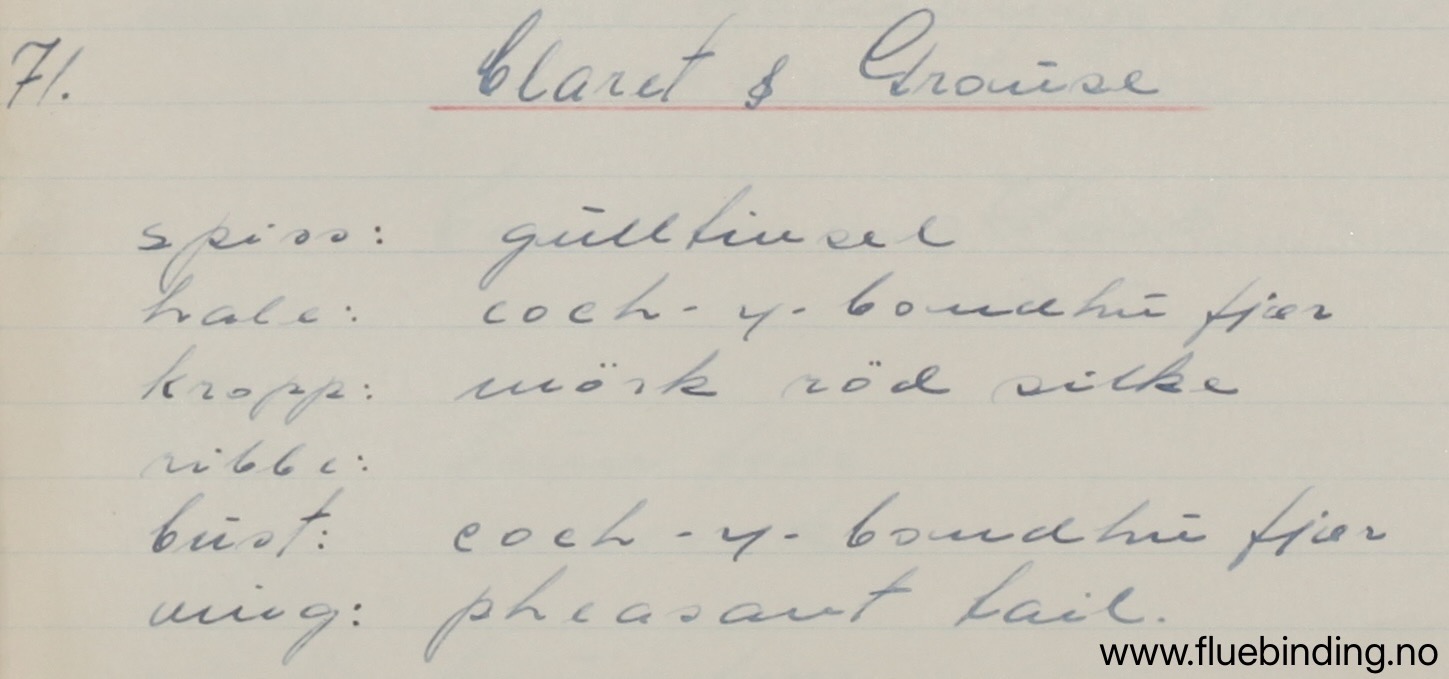 71. Claret & Grouse
spiss: gulltinsel
hale: coch-y-bondhu fjær
kropp: mörk röd silke
ribbe:
bust: coch-y-bondhu fjær
ving: pheasant tail.
www.fluebinding.no